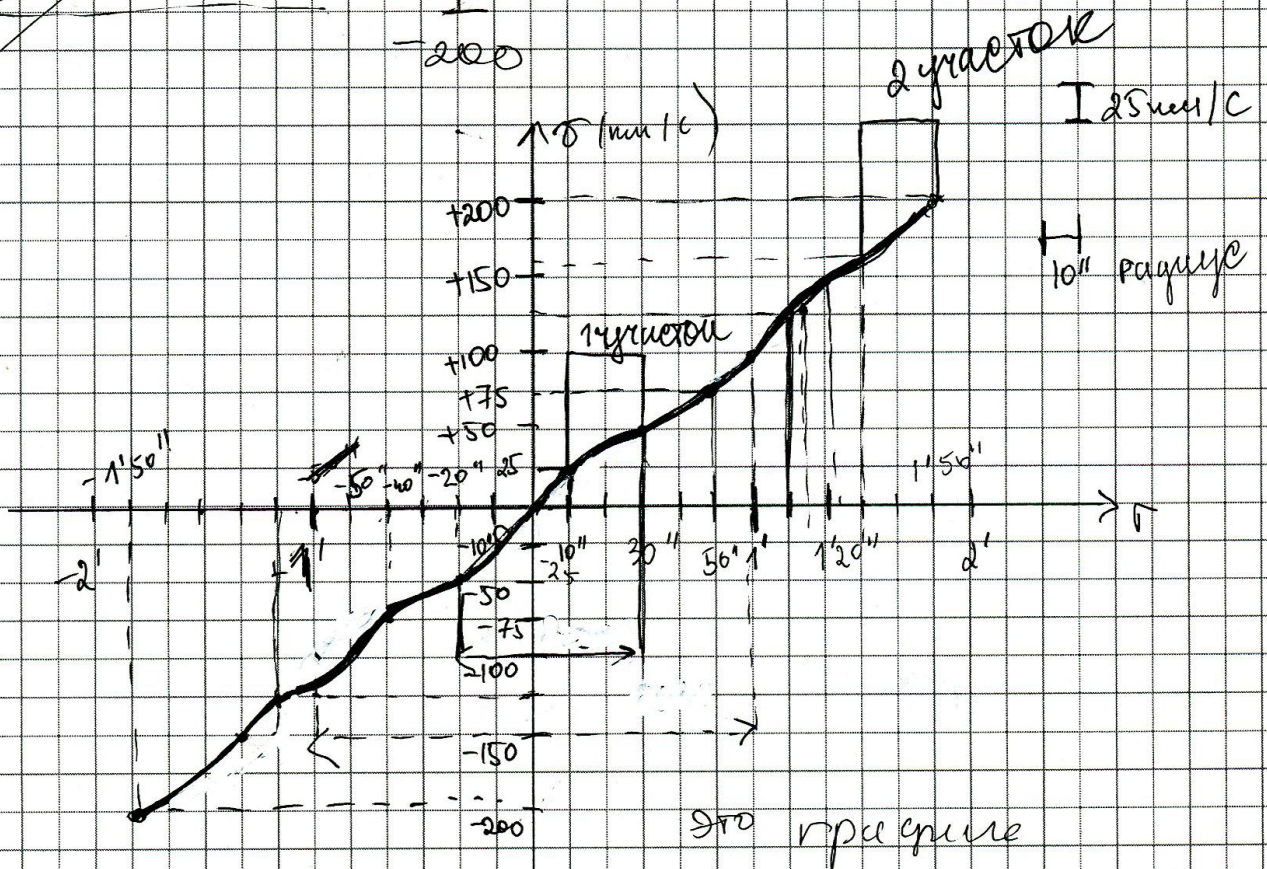 -200
2 участок
25 км/с
v (км/с)
+200
10" радиус
+150
1 участок
+100
+75
+50
-1'50"
-50"
-40"
-20"
25
1'50"
r
-2'
-1'
-10"
10"
-25
30"
50"
1'
1'20"
2'
-50
-75
-100
-150
-200
это графике